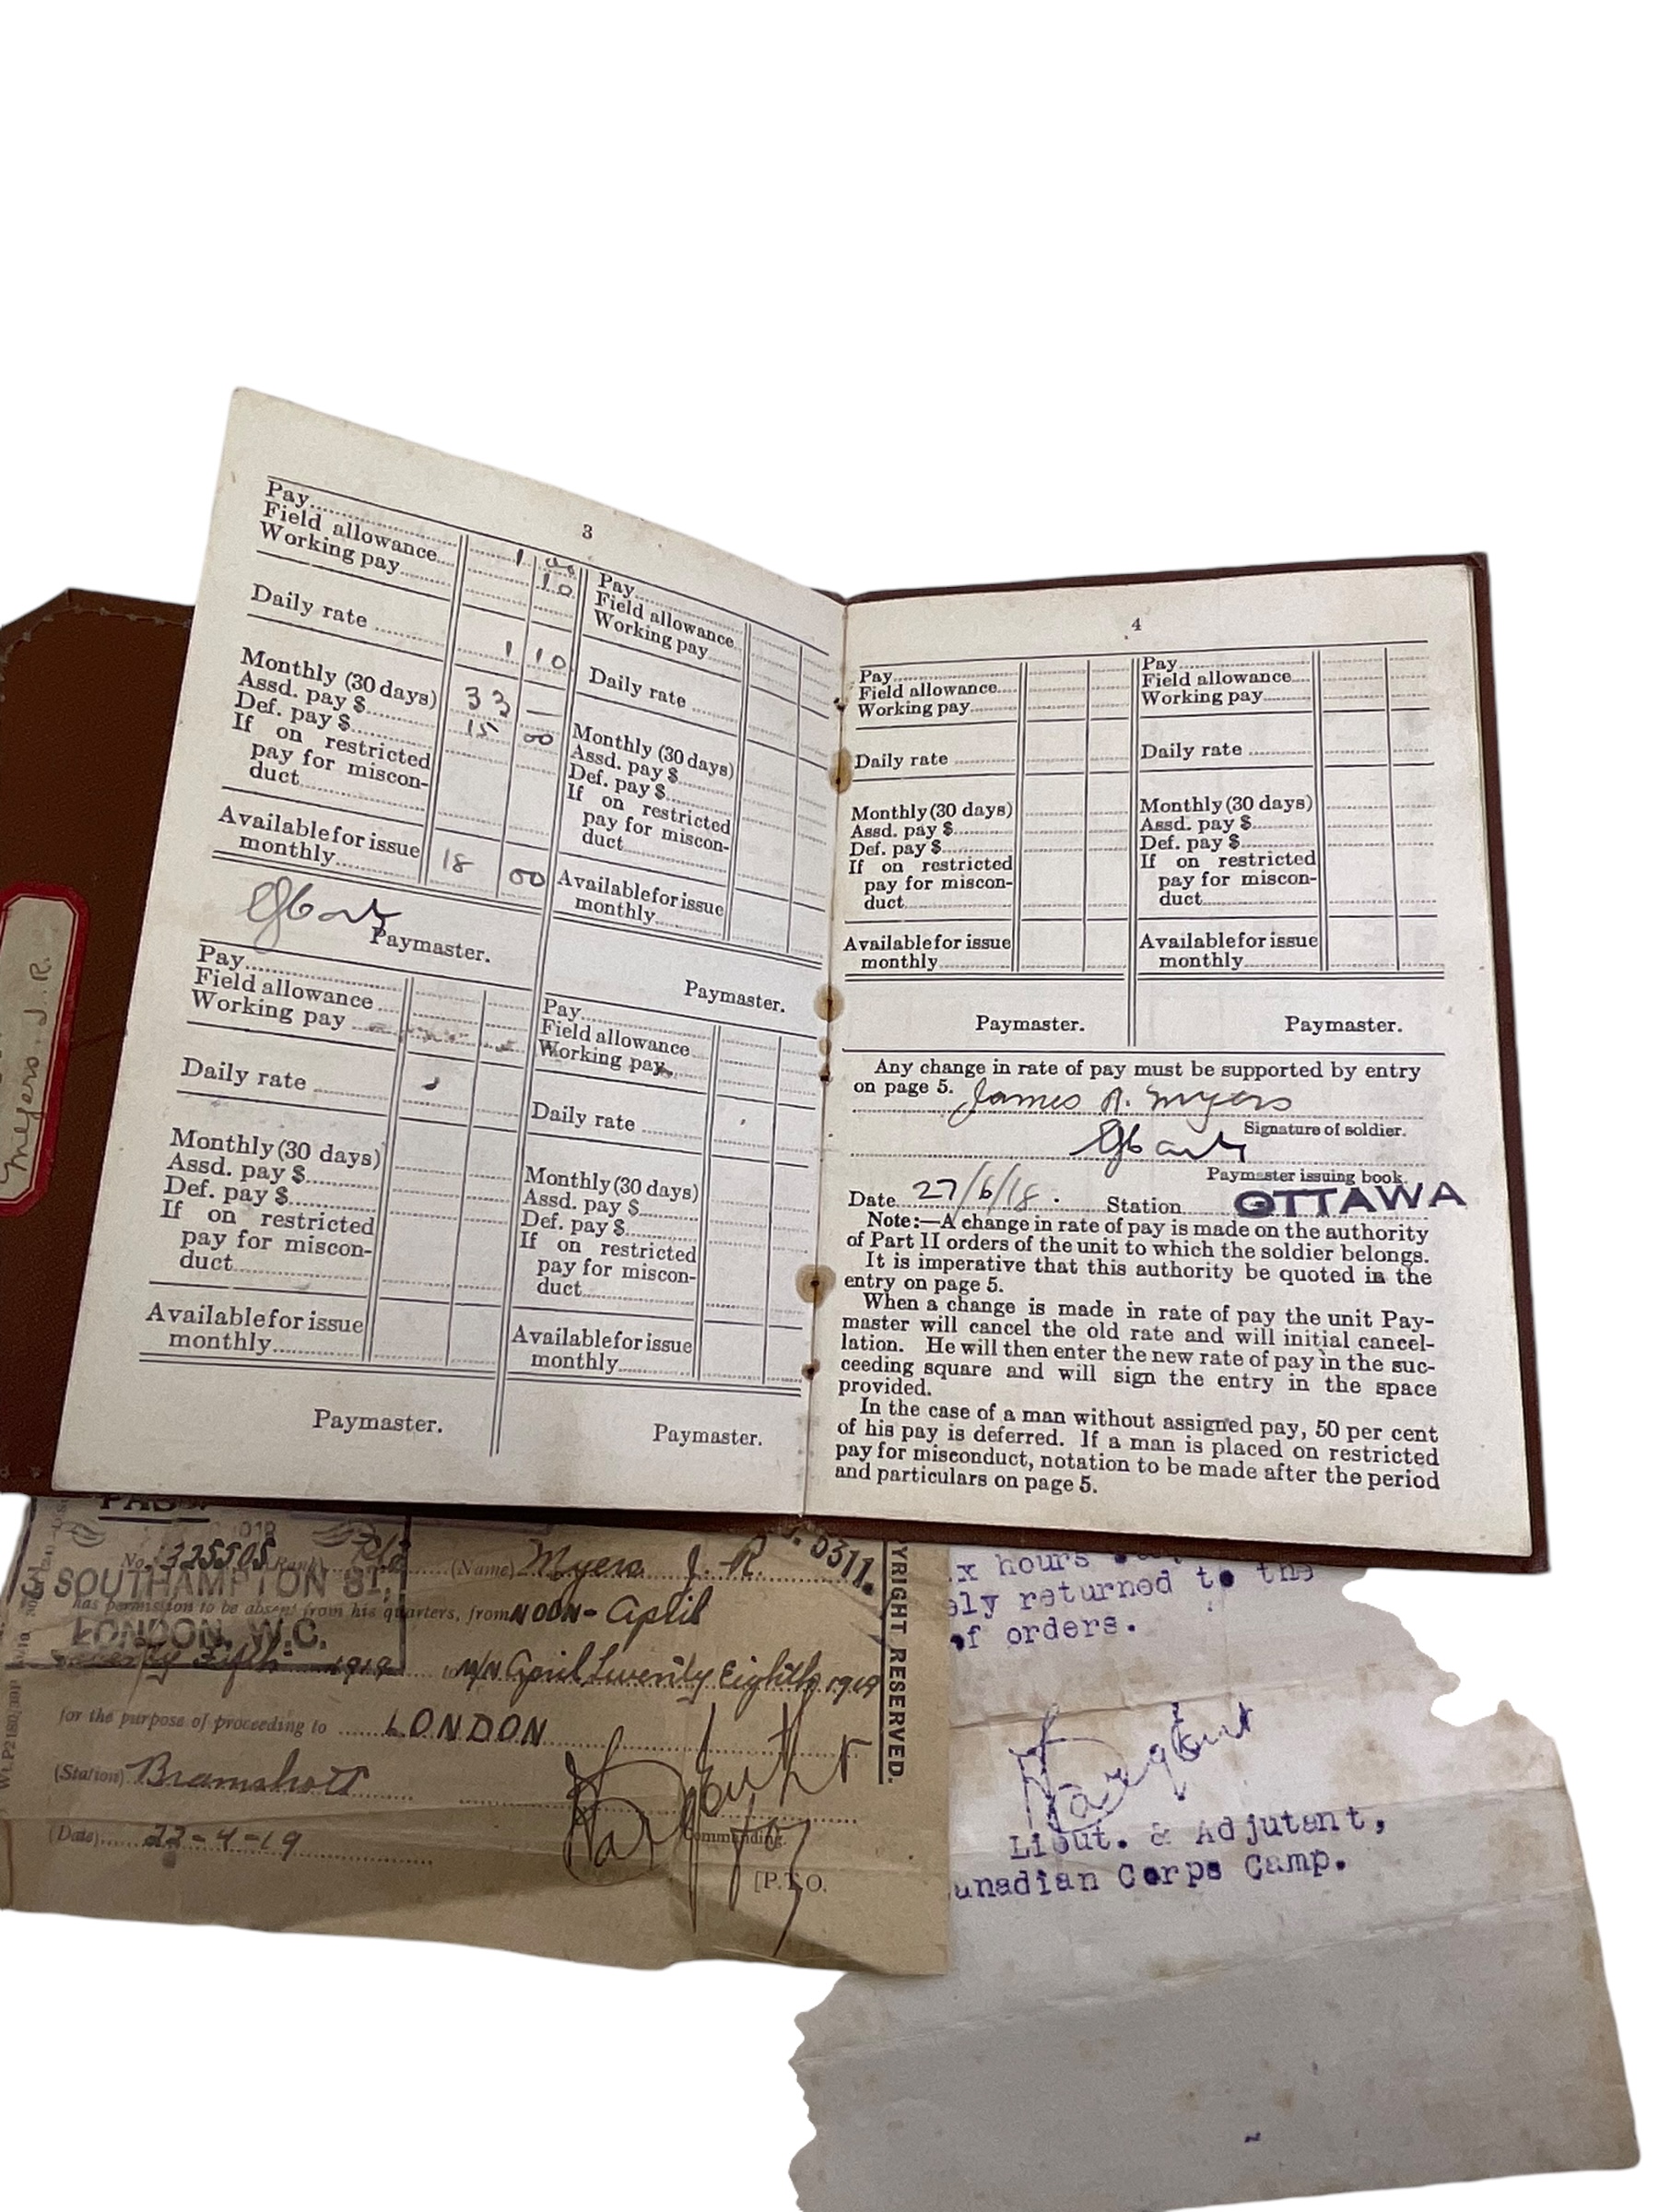 3
Pay
1 00
Field allowance
10
Working pay
Daily rate
1 10
Monthly (30 days)
33 —
Assd. pay $
15 00
Def. pay $
If on restricted
pay for miscon-
duct
Available for issue
monthly
18 00
Paymaster.
Pay
Field allowance
Working pay
Daily rate
Monthly (30 days)
Assd. pay $
Def. pay $
If on restricted
pay for miscon-
duct
Available for issue
monthly
Paymaster.
Pay
Field allowance
Working pay
Daily rate
Monthly (30 days)
Assd. pay $
Def. pay $
If on restricted
pay for miscon-
duct
Available for issue
monthly
Paymaster.
Pay
Field allowance
Working pay
Daily rate
Monthly (30 days)
Assd. pay $
Def. pay $
If on restricted
pay for miscon-
duct
Available for issue
monthly
Paymaster.
Myers. J. R.
4
Pay
Field allowance
Working pay
Daily rate
Monthly (30 days)
Assd. pay $
Def. pay $
If on restricted
pay for miscon-
duct
Available for issue
monthly
Paymaster.
Pay
Field allowance
Working pay
Daily rate
Monthly (30 days)
Assd. pay $
Def. pay $
If on restricted
pay for miscon-
duct
Available for issue
monthly
Paymaster.
Any change in rate of pay must be supported by entry
on page 5.
James R. Myers
Signature of soldier.
Paymaster issuing book.
Date 27/6/18. Station OTTAWA
Note:—A change in rate of pay is made on the authority
of Part II orders of the unit to which the soldier belongs.
It is imperative that this authority be quoted in the
entry on page 5.
When a change is made in rate of pay the unit Pay-
master will cancel the old rate and will initial cancel-
lation. He will then enter the new rate of pay in the suc-
ceeding square and will sign the entry in the space
provided.
In the case of a man without assigned pay, 50 per cent
of his pay is deferred. If a man is placed on restricted
pay for misconduct, notation to be made after the period
and particulars on page 5.
PASS.
No. 325505 (Rank) Pte (Name) Myers J. R.
SOUTHAMPTON ST,
has permission to be absent from his quarters, from NOON - April
LONDON, W.C.
Fifth 1919 to M/N April Twenty Eighth 1919
for the purpose of proceeding to LONDON
(Station) Bramshott
(Date) 22-4-19
Commanding
[P.T.O.
YRIGHT RESERVED.
0311.
x hours
ely returned to the
of orders.
Lieut. & Adjutant,
anadian Corps Camp.